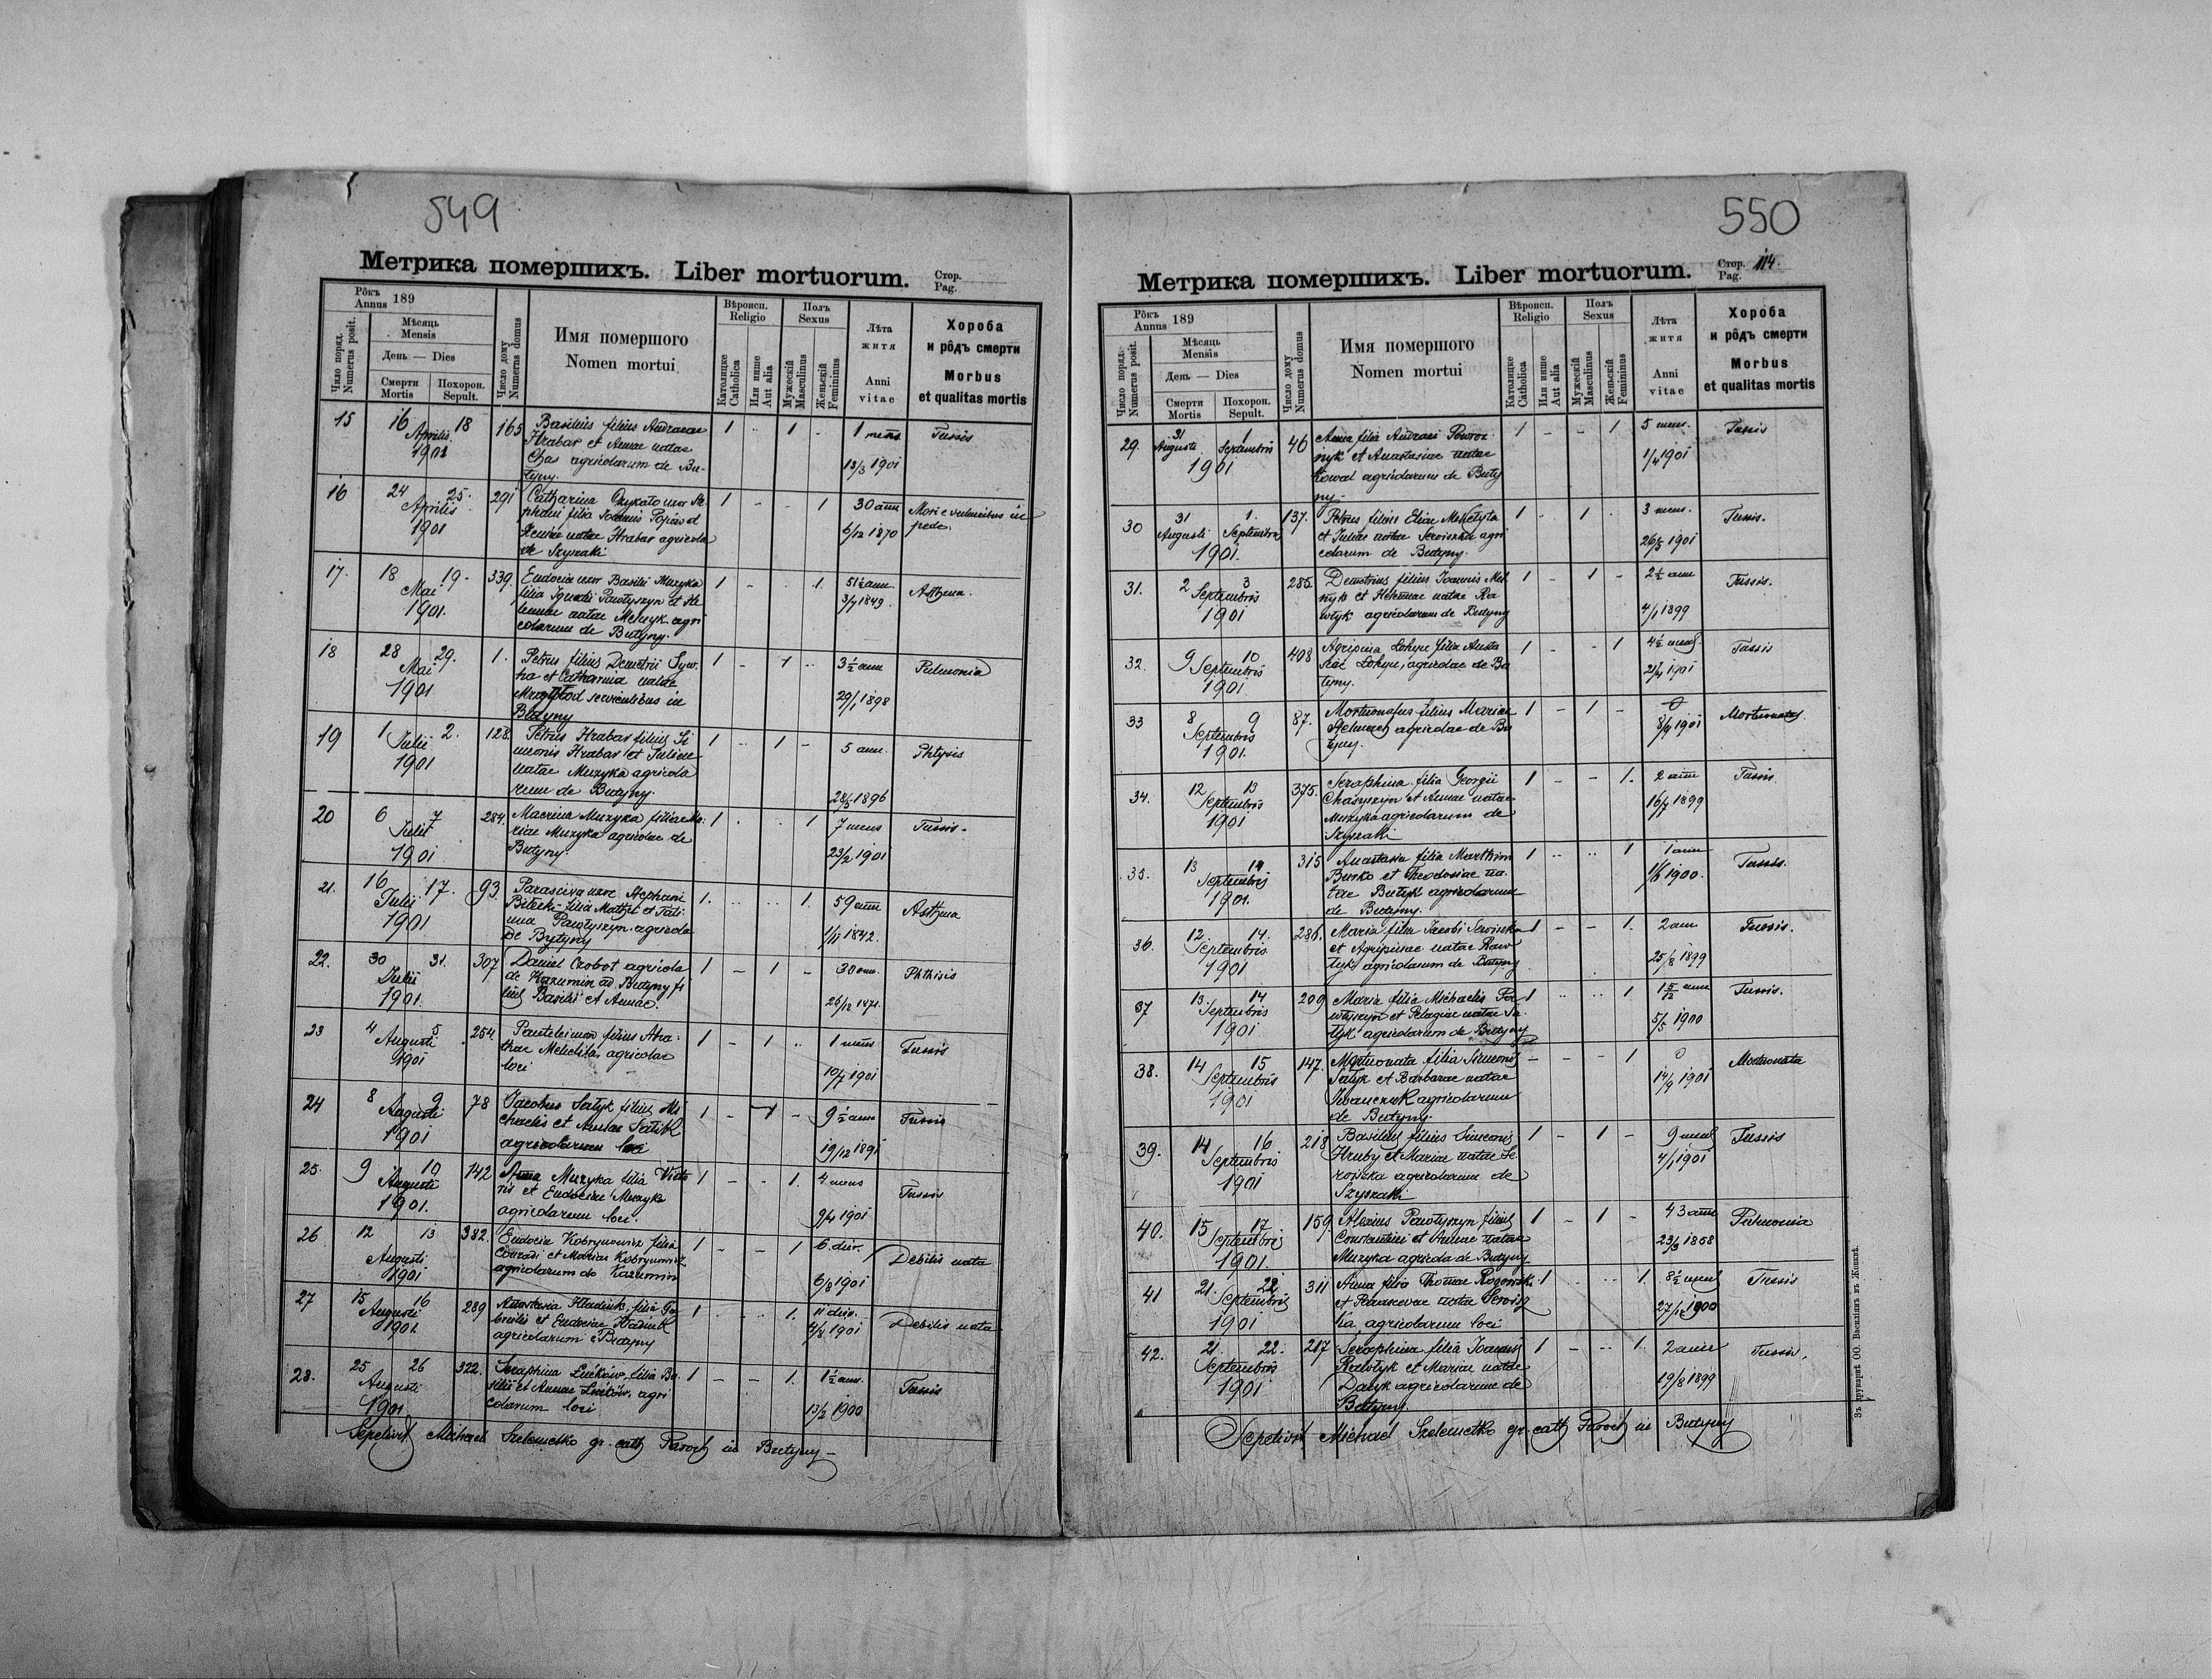 549
Метрика помершихъ. Liber mortuorum.
Стор.
Pag.
Рôкъ 189
Annus
Мѣсяць
Mensis
День — Dies
Число поряд.
Numerus posit.
Смерти
Mortis
Похорон.
Sepult.
Число дому
Numerus domus
Имя помершого
Nomen mortui
Вѣроисп.
Religio
Католицке
Catholica
Или инше
Aut alia
Полъ
Sexus
Мужескій
Masculinus
Женьскій
Femininus
Лѣта
житя
Anni
vitae
Хороба
и рôдъ смерти
Morbus
et qualitas mortis
15 16 18 165 Basilius filius Andreae 1 1 1 mens Tussis
Aprilis Hrabar et Annae natae
1901 Chas agricolarum de Bu- 13/3 1901
tyny.
16 24 25. 291 Catharina uxor Ste 1 - - 1 30 ann
Aprilis phani filia Joannis in
1901 natae Hrabar agricola 6/12 1870 pede.
de Szyszaki
17. 18 19. 339. Eudocia uxor Basilii Muzyka 1 1. 51½ ann. Asthma.
Mai filia Pawłyszyn et He 3/7 1849.
1901. lenae natae Melnyk agri
colarum de Butyny.
18 28 29. 1. Petrus filius Demetrii 1 - 1 3½ ann Pulmonia
Mai et Catharina natae
1901 in 29/1 1898
Butyny
19 1 2. 128. Petrus Hrabar filius Si 1 1 - 5 ann. Phtysis
Julii meonis Hrabar et Juliae
1901 natae Muzyka agricola
rum de Butyny. 28/5 1896
20 6 7 284. Muzyka filia Ma- 1 1 7 mens Tussis.
Julii riae Muzyka agricolae de
1901 Butyny. 23/2 1901
21. 16 17. 93. Parasceva uxor Stephani 1. 1. 59 ann Asthma
Julii filia
1901 Pawłyszyn agricola 1/11 1842.
de Butyny
22. 30 31. 307 Daniel Czobot agricola 1 - 1 - 30 ann. Phthisis
Julii de Kazumin ad Butyny fi
1901. lius Basilii et Annae. 26/12 1871.
23 4 5 254. Panteleimon filius 1 - 1 1 mens Tussis
Augusti agricolae
1901 loci 10/7 1901
24 8 9 78 Jacobus Satyk filius Mi 1 - 1 - 9½ ann Tussis
Augusti chaelis et Annae Satik
1901 agricolarum loci 19/12 1891
25. 9 10 142 Anna Muzyka filia 1 - - 1. 4 mens Tussis
Augusti et Eudociae Muzyk
1901. agricolarum loci. 9/4 1901
26 12 13 382. Eudocia Kobrynowicz filia 1 - - 1 6. dier. Debilis nata
Augusti Conradi et Mariae Kobrynowicz
1901 agricolarum de Kazumin 6/8 1901
27 15 16 289 Anastasia Hladiuk filia Ga 1 1. 11 dier. Debilis nata
Augusti brielis et Eudociae Hladiuk 4/8 1901
1901. agricolarum Butyny
28. 25 26 322. Seraphina filia Ba 1 - - 1. 1½ ann. Tussis
Augusti silii et Annae agri
1901 colarum loci 13/2 1900
Sepelivit Michael Szelemetko gr. cath Paroch in Butyny
550
Метрика помершихъ. Liber mortuorum.
Стор. 114.
Pag.
Рôкъ 189
Annus
Мѣсяць
Mensis
День — Dies
Число поряд.
Numerus posit.
Смерти
Mortis
Похорон.
Sepult.
Число дому
Numerus domus
Имя помершого
Nomen mortui
Вѣроисп.
Religio
Католицке
Catholica
Или инше
Aut alia
Полъ
Sexus
Мужескій
Masculinus
Женьскій
Femininus
Лѣта
житя
Anni
vitae
Хороба
и рôдъ смерти
Morbus
et qualitas mortis
29. 31 1 46 Anna filia Andreae Powroz 1 - - 1 5 mens. Tussis
Augusti Septembris nyk et Anastasiae natae
1901 Kowal agricolarum de Buty 1/4 1901
ny.
30 31 1. 137. Petrus filius Eliae 1 - 1 - 3 mens. Tussis.
Augusti Septembris et Juliae natae agri
1901. colarum de Butyny. 26/5 1901
31. 2 3 285. Demetrius filius Joannis Mel 1 - 1 - 2½ ann Tussis.
Septembris nyk et Helenae natae Ra
1901 włyk agricolarum de Butyny 4/1 1899
32. 9 10 408 Agripina Lohyn filia Anasta 1 - - 1 4½ mens. Tussis
Septembris siae Lohyn, agricolae de Bu 21/4 1901
1901. tyny.
33 8 9 87. Mortuonatus filius Mariae 1 - 1 - 0 Mortuonatus
Septembris agricolae de Bu 8/9 1901
1901. tyny.
34. 12 13 375. Seraphina filia Georgii 1 - - 1. 2 ann Tussis.
Septembris Chasyszyn et Annae natae 16/7 1899
1901 Muzyka agricolarum de
Szyszaki
35. 13 14 315 Anastasia filia Marthini 1 1 1 ann Tussis.
Septembris Busko et Theodosiae na 1/6 1900.
1901. tae agricolarum
de Butyny.
36. 12. 14. 286. Maria filia Jacobi 1 - - 1. 2 ann Tussis.
Septembris et Agripinae natae Raw
1901 łyk agricolarum de Butyny 25/8 1899
37 13. 14 209 Maria filia Michaelis Pa 1 1 1 5/12 ann Tussis.
Septembris włyszyn et Pelagiae natae Sa
1901 tyk agricolarum de Butyny 5/5 1900
38. 14 15 147. Mortuonata filia Simeonis - - - 1 0 Mortuonata
Septembris Satyk et Barbarae natae 14/9 1901
1901 Iwanczuk agricolarum
de Butyny.
39. 14 16 218 Basilius filius Simeonis 1 - 1 - 9 mens Tussis
Septembris Hruby et Mariae natae Se 4/1 1901
1901 roiszka agricolarum de
Szyszaki
40. 15 17 159. Alexius Pawłyszyn filius 1 - 1 - 43 ann Pulmonia
Septembris Constantini et Annae natae
1901. Muzyka agricola de Butyny 23/3 1858
41 21. 22 311 Anna filia Thomae Rogowski 1 1. 8½ mens Tussis
Septembris et Parascevae natae
1901 agricolarum loci 27/12 1900
42. 21. 22. 217 Seraphina filia Joannis 1 - 1. 2 ann Tussis.
Septembris Rawłyk et Mariae natae
1901 Dacyk agricolarum de 19/8 1899
Butyny.
Sepelivit Michael Szelemetko gr. cath Paroch in Butyny
Зъ друкарнѣ ОО. Василіянъ въ Жовквѣ.